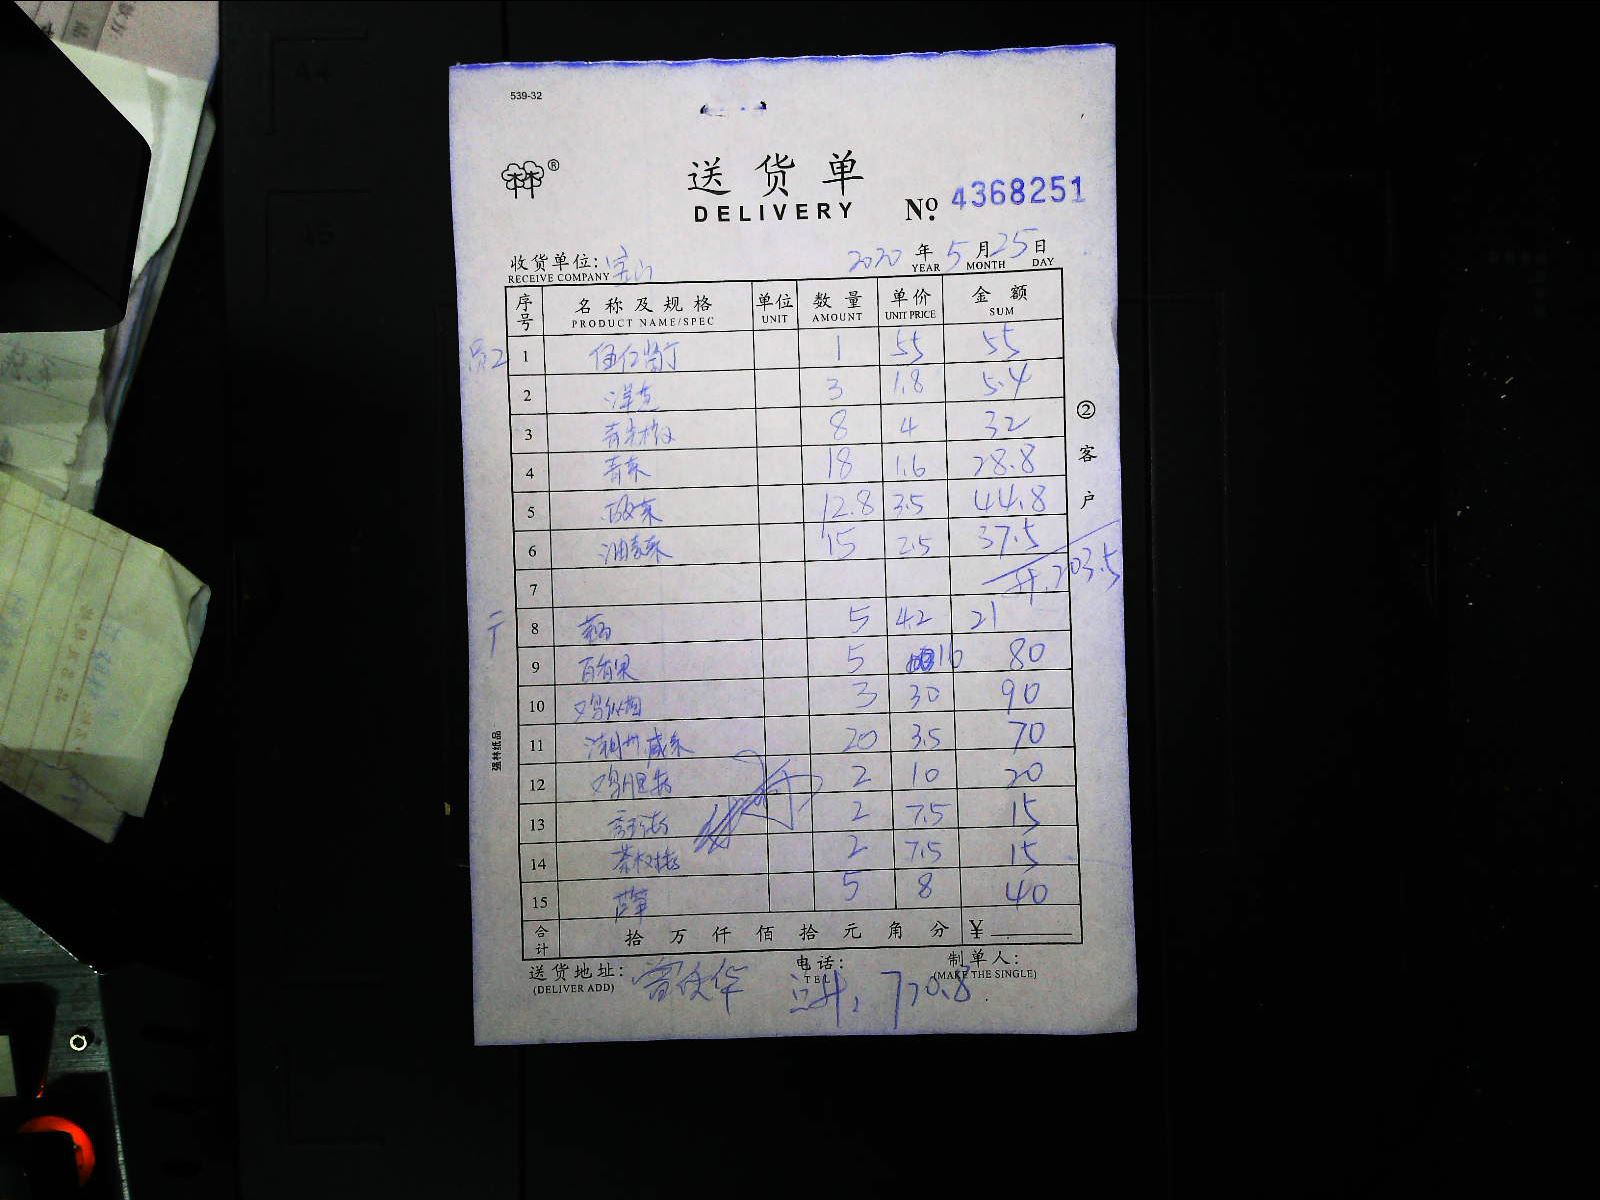 539-32
送货单
DELIVERY
№ 4368251
收货单位:
RECEIVE COMPANY
2020 年 5 月 25 日
YEAR MONTH DAY
序号 名称及规格 单位 数量 单价 金额
PRODUCT NAME/SPEC UNIT AMOUNT UNIT PRICE SUM
员工 1 1 55 55
2 洋芫 3 1.8 5.4
3 8 4 32
4 青菜 18 1.6 28.8
5 12.8 3.5 44.8
6 油麦菜 15 2.5 37.5
7 203.5
8 5 4.2 21
9 百香果 5 16 80
10 3 30 90
11 潮州咸菜 20 3.5 70
12 2 10 20
13 2 7.5 15
14 茶树菇 2 7.5 15
15 芦笋 5 8 40
合计 拾 万 仟 佰 拾 元 角 分 ¥
送货地址: 电话: 制单人:
(DELIVER ADD) TEL (MAKE THE SINGLE)
770.8
② 客户
强林纸品